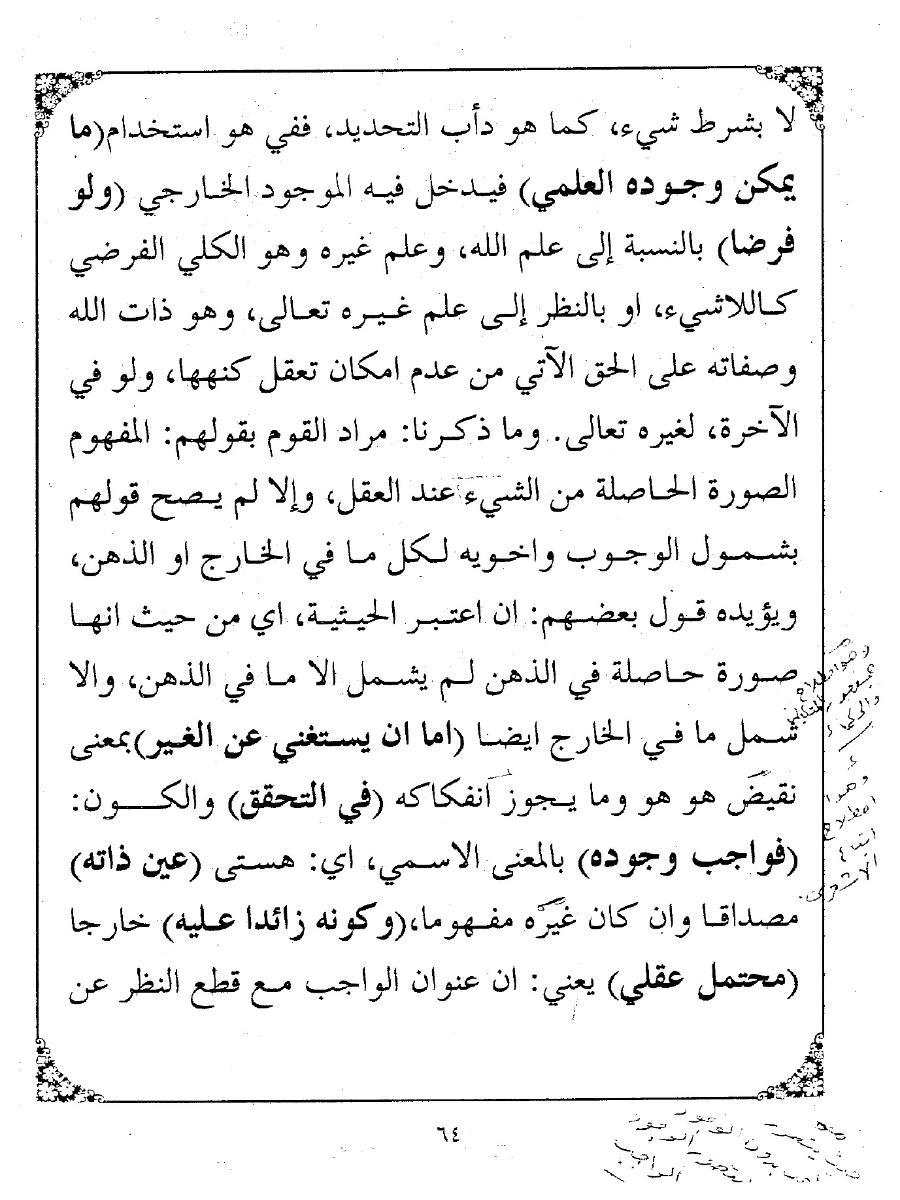 لا بشرط شيء، كما هو دأب التحديد، ففي هو استخدام(ما
يمكن وجوده العلمي) فيدخل فيه الموجود الخارجي (ولو
فرضا) بالنسبة إلى علم الله، وعلم غيره وهو الكلي الفرضي
كاللاشيء، او بالنظر إلى علم غيره تعالى، وهو ذات الله
وصفاته على الحق الآتي من عدم امكان تعقل كنهها، ولو في
الآخرة، لغيره تعالى. وما ذكرنا: مراد القوم بقولهم: المفهوم
الصورة الحاصلة من الشيء عند العقل، وإلا لم يصح قولهم
بشمول الوجوب واخويه لكل ما في الخارج او الذهن،
ويؤيده قول بعضهم: ان اعتبر الحيثية، اي من حيث انها
صورة حاصلة في الذهن لم يشمل الا ما في الذهن، والا
شمل ما في الخارج ايضا (اما ان يستغني عن الغير)بمعنى
نقيض هو هو وما يجوز انفكاكه (في التحقق) والكون:
(فواجب وجوده) بالمعنى الاسمي، اي: هستى (عين ذاته)
مصداقا وان كان غيره مفهوما،(وكونه زائدا عليه) خارجا
(محتمل عقلي) يعني: ان عنوان الواجب مع قطع النظر عن
٦٤
وهذا
اصطلاح